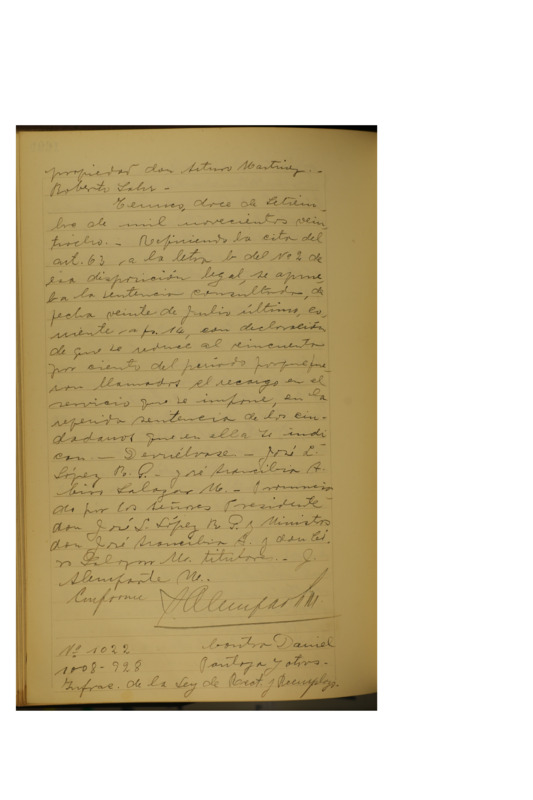 propiedad don Arturo Martinez. -
Roberto Sahr -
Temuco, doce de Setiem-
bre de mil novecientos vein
tiocho. - Refiriendo la cita del
art. 63 a la letra b del No 2 de
esa disposición legal, se aprue
ba la sentencia consultada, de
fecha veinte de Julio último, es,
criente a fs. 16, con declaración
de que se reduce al cincuenta
por ciento del período porque fue
ron llamados el recargo en el
servicio que se impone, en la
referida sentencia de los ciu-
dadanos que en ella se indi
can. - Devuélvase - José L.
López R. P. - José Arancibia A.
Ciro Salazar M. - Pronuncia
do por los señores Presidente
don José S. López R. P. y Ministros
don José Arancibia A. y don Ci-
ro Salazar M. titulares. - J.
Alemparte M.
Conforme J Alemparte M.
No 1022 Contra Daniel
1008-928 Pantoja y otros.
Infrac. de la Ley de Reclt. y Reemplazo.